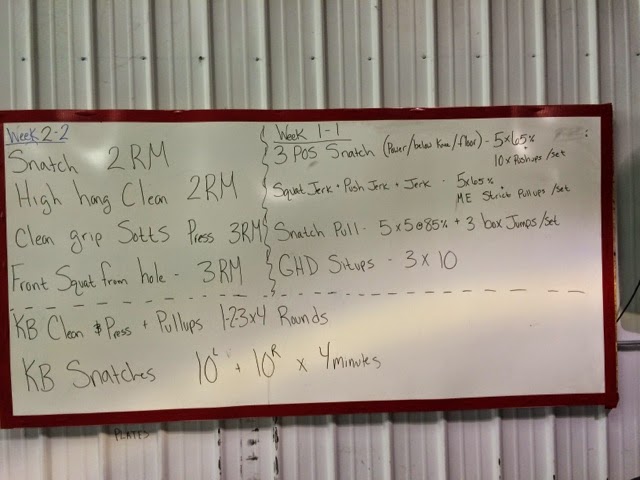 Week 2-2
Snatch 2RM
High hang Clean 2RM
Clean grip Sotts Press 3RM
Front Squat from hole - 3RM
Week 1-1
3 Pos Snatch (Power/below Knee/floor) - 5x65%
10x Pushups/set
Squat Jerk + Push Jerk + Jerk - 5x65%
ME Strict Pullups/set
Snatch Pull - 5x5@85% + 3 box Jumps/set
GHD Situps - 3x10
KB Clean & Press + Pullups 1-2-3x4 Rounds
KB Snatches 10L + 10R x 4 minutes
PLATES